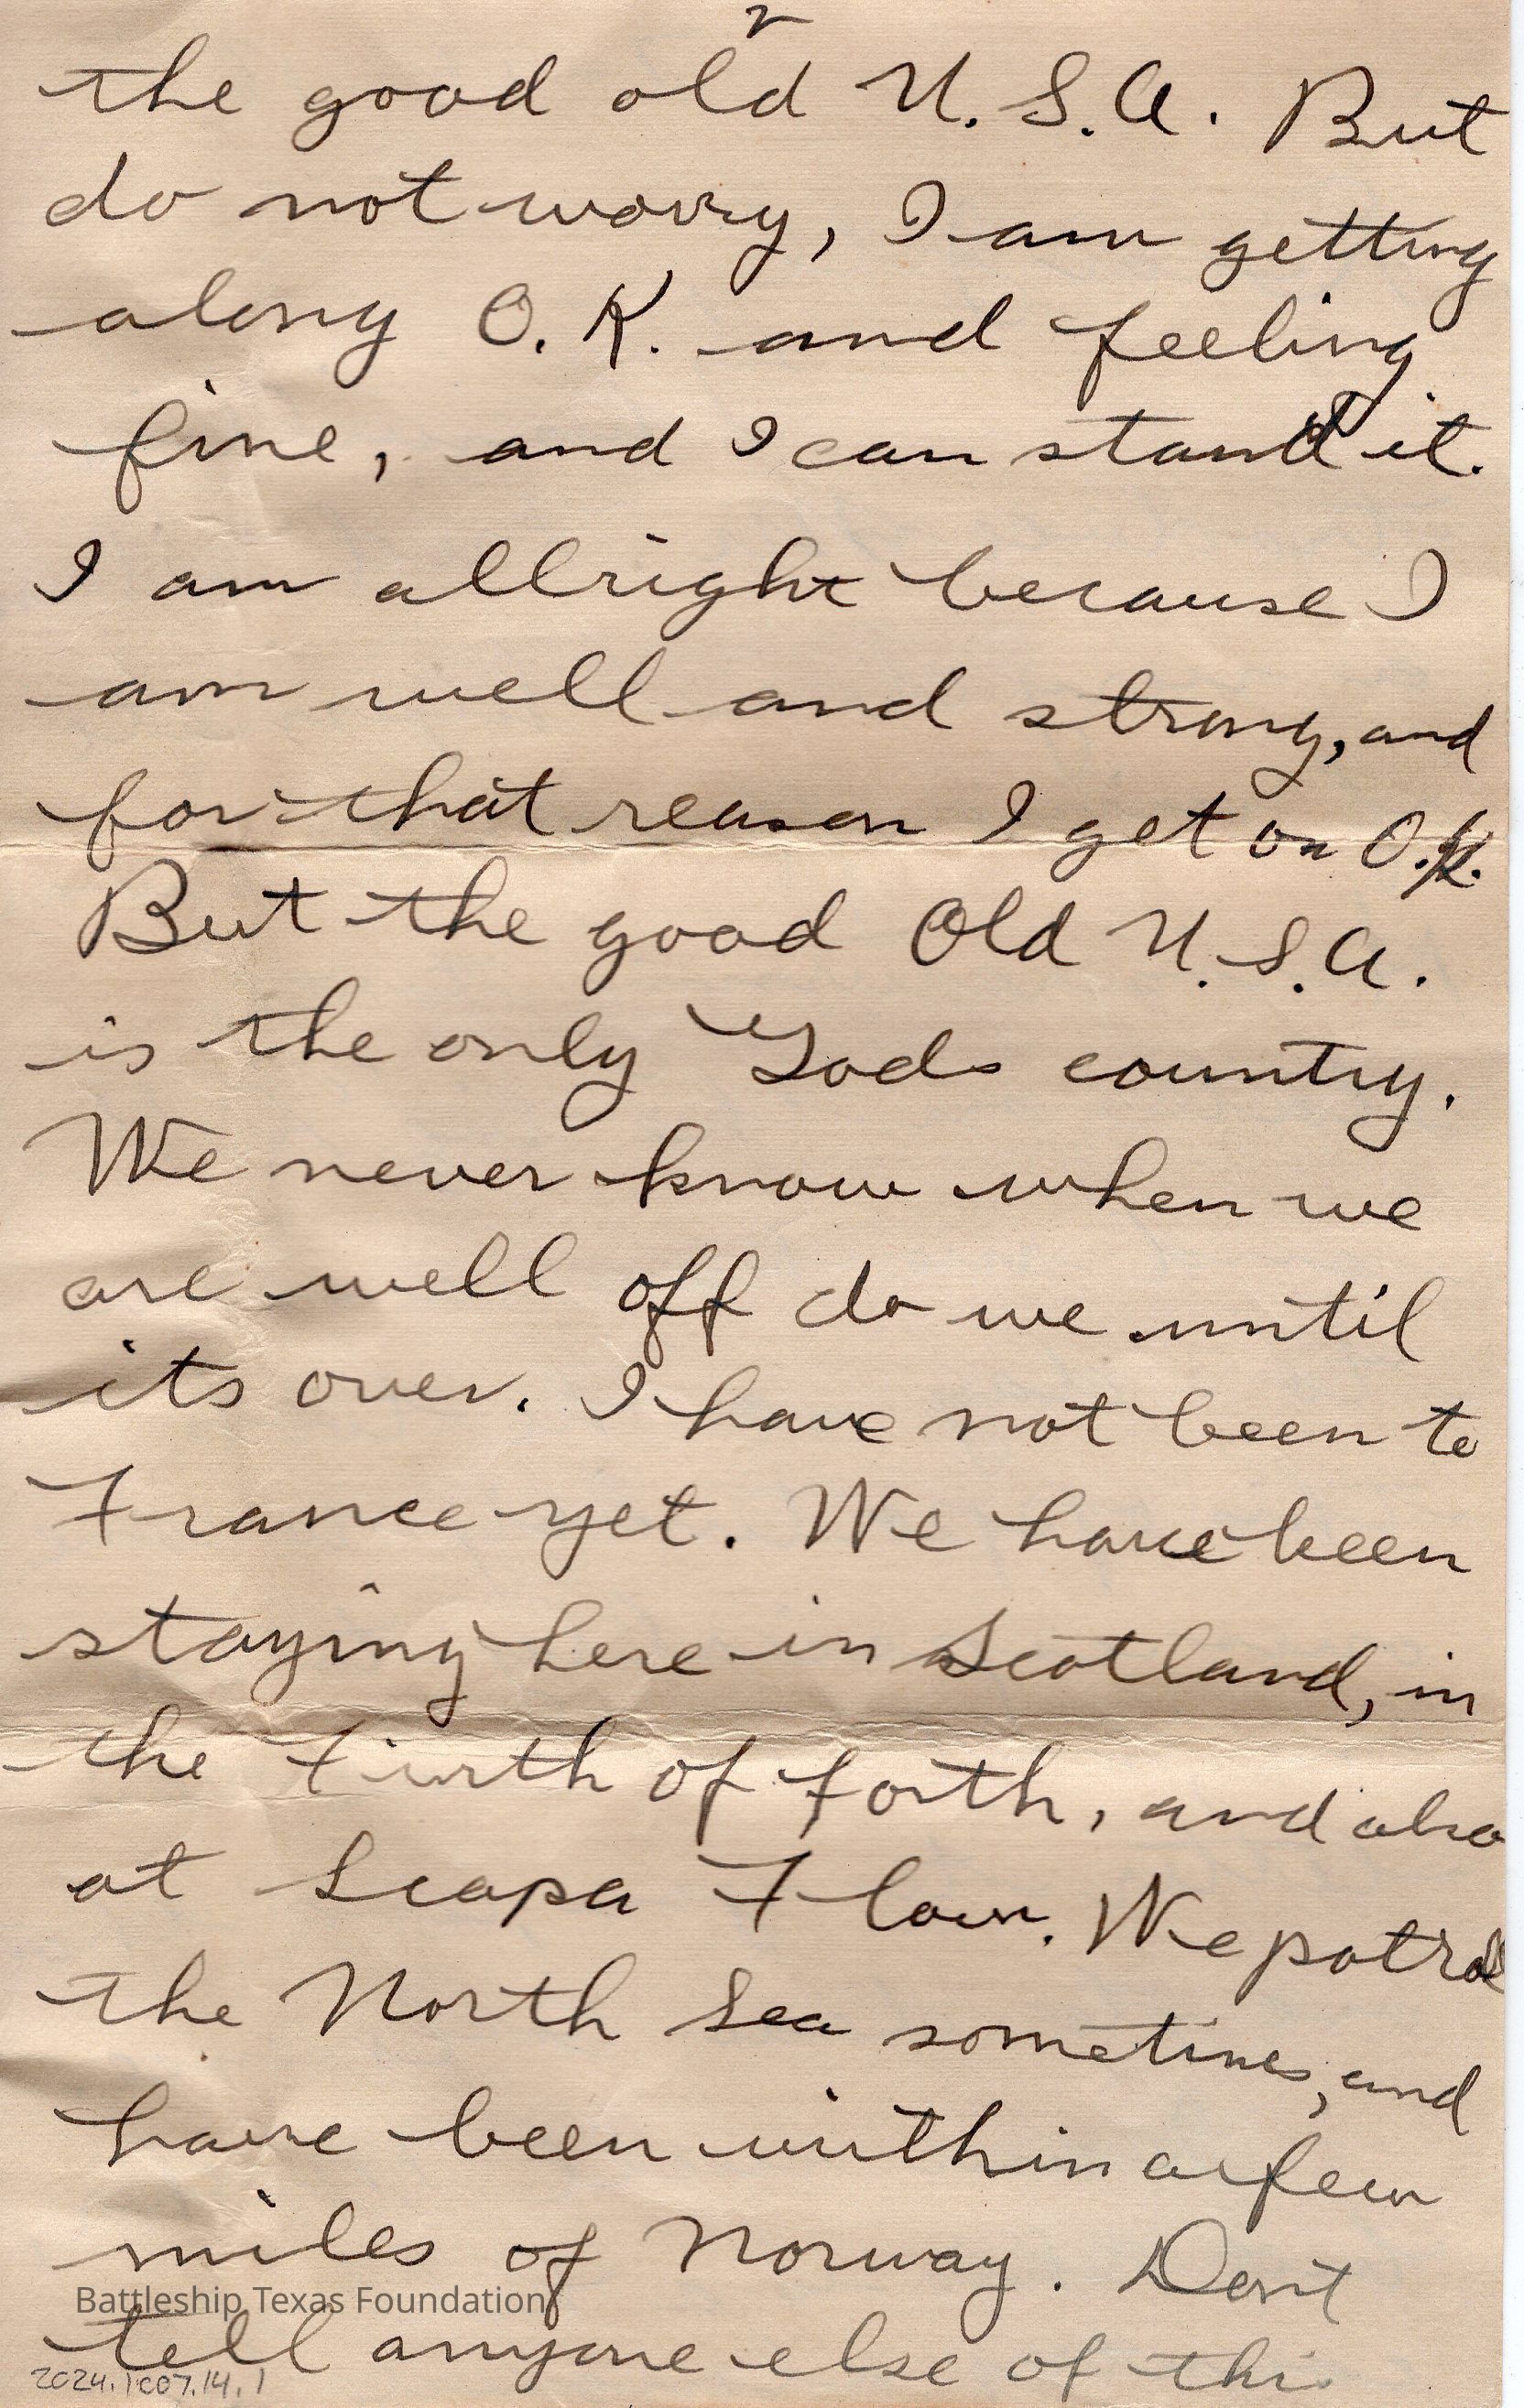 2
the good old U.S.A. But
do not worry, I am getting
along O.K. and feeling
fine, and I can stand it.
I am allright because I
am well and strong, and
for that reason I get on O.K.
But the good Old U.S.A.
is the only Gods country.
We never know when we
are well off do we until
its over. I have not been to
France yet. We have been
staying here in Scotland, in
the Firth of Forth, and also
at Scapa Flow. We patrol
the North Sea sometimes, and
have been within a few
miles of Norway. Don't
Battleship Texas Foundation
tell anyone else of this
2024.1c07.14.1